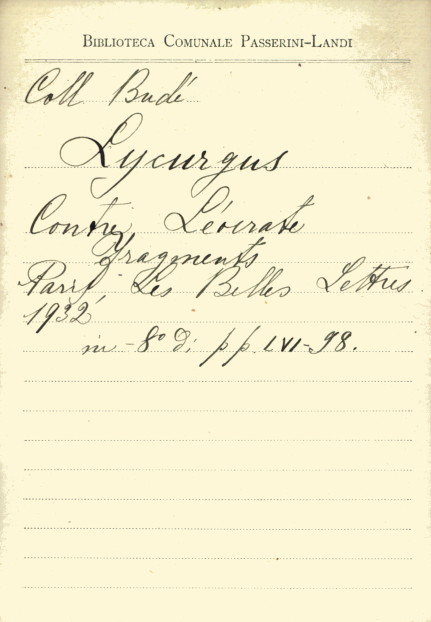 BIBLIOTECA COMUNALE PASSERINI-LANDI
Coll Budé
Lycurgus
Contre Léocrate
Fragments
Paris Les Belles Lettres
1932
in-8° di pp. LVI-98.